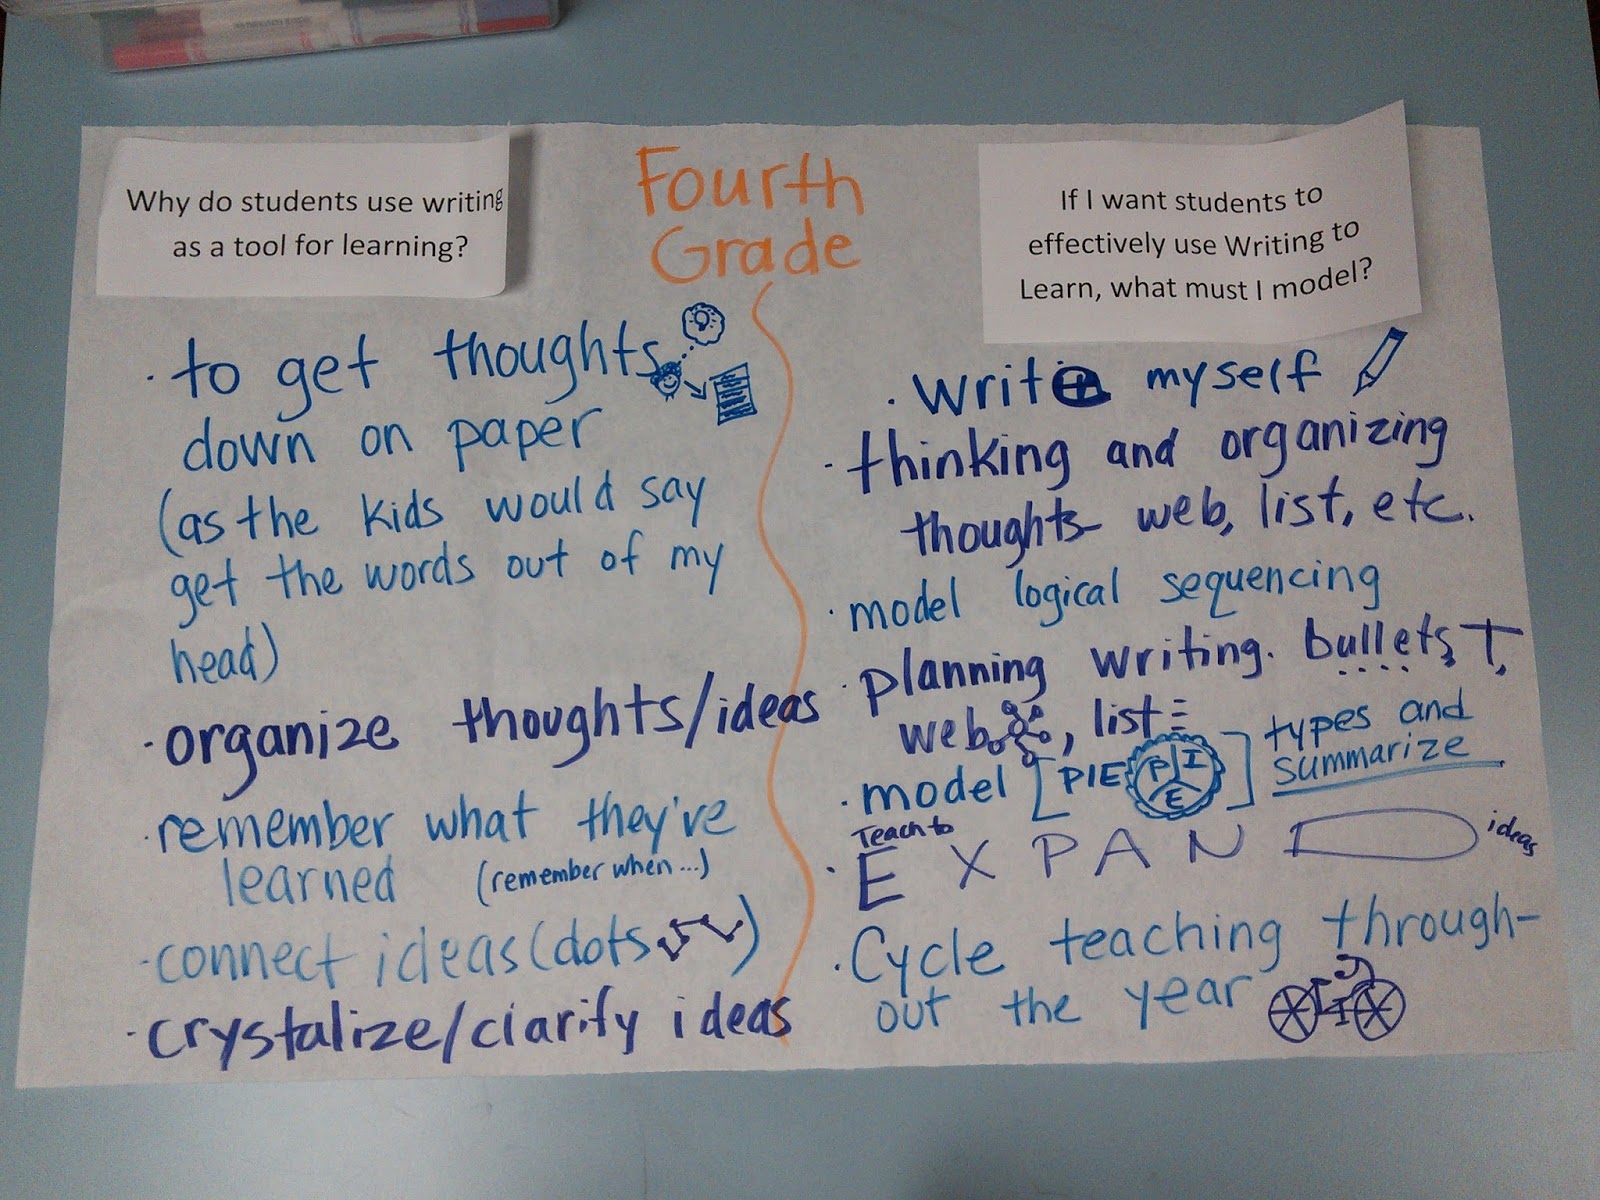 Fourth
Grade
Why do students use writing
as a tool for learning?
· to get thoughts
down on paper
(as the kids would say
get the words out of my
head)
· organize thoughts/ideas
· remember what they've
learned (remember when...)
· connect ideas (dots)
· crystalize/clarify ideas
If I want students to
effectively use Writing to
Learn, what must I model?
· write myself
· thinking and organizing
thoughts- web, list, etc.
· model logical sequencing
· planning writing. bullets, T,
web, list
· model [PIE P I E] types and
summarize
Teach to
· EXPAND ideas
· Cycle teaching through-
out the year